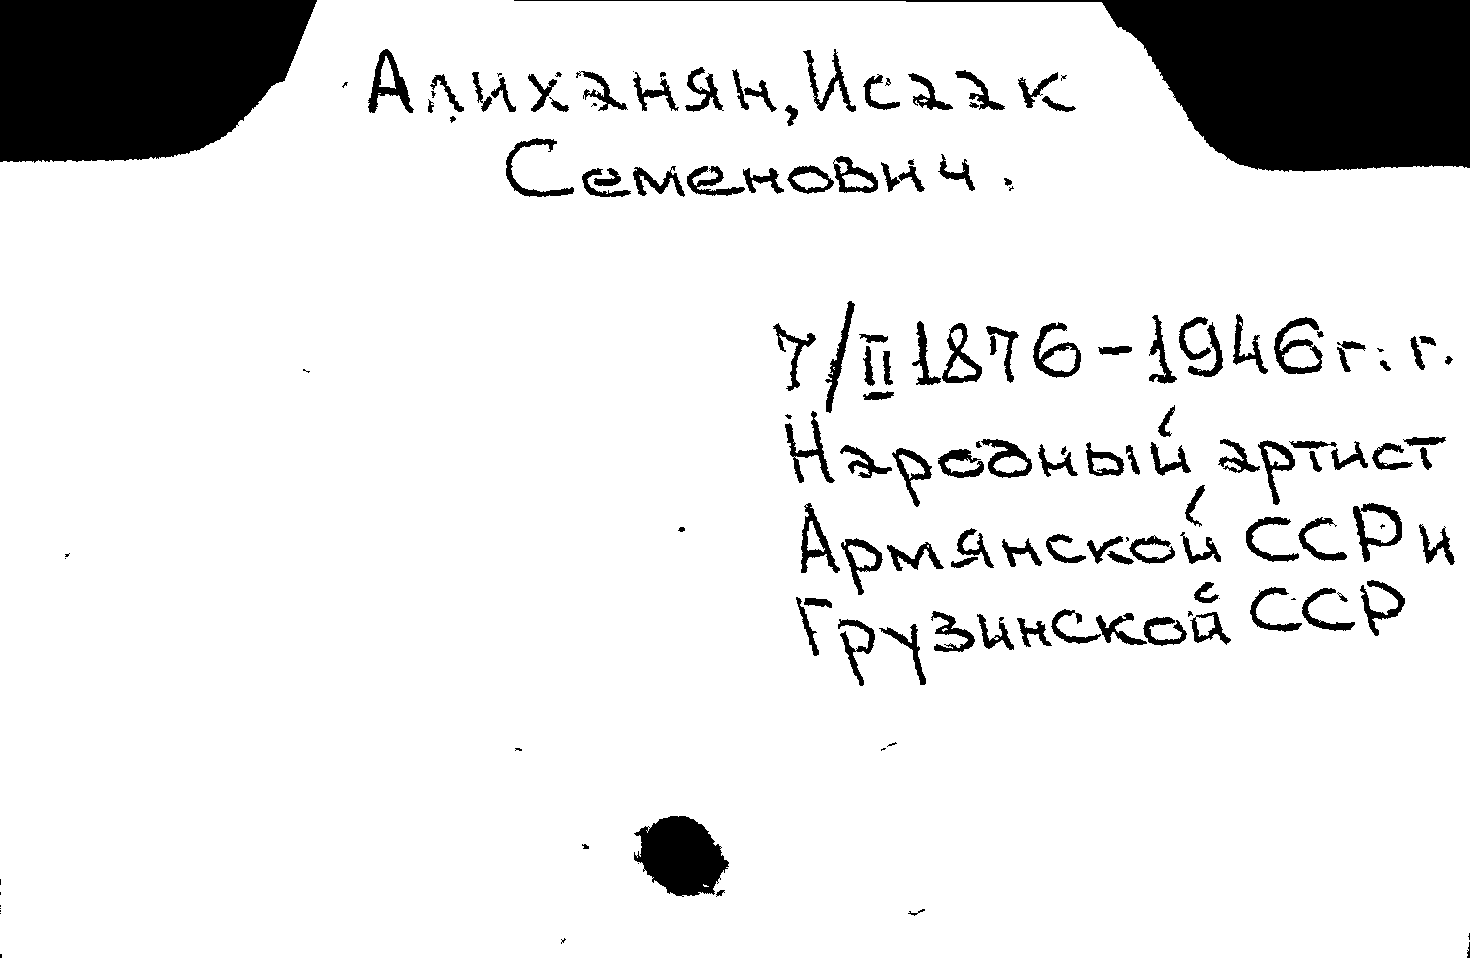 Алиханян, Исаак
Семенович.
7/II 1876-1946 г.г.
Народный артист
Армянской ССР и
Грузинской ССР